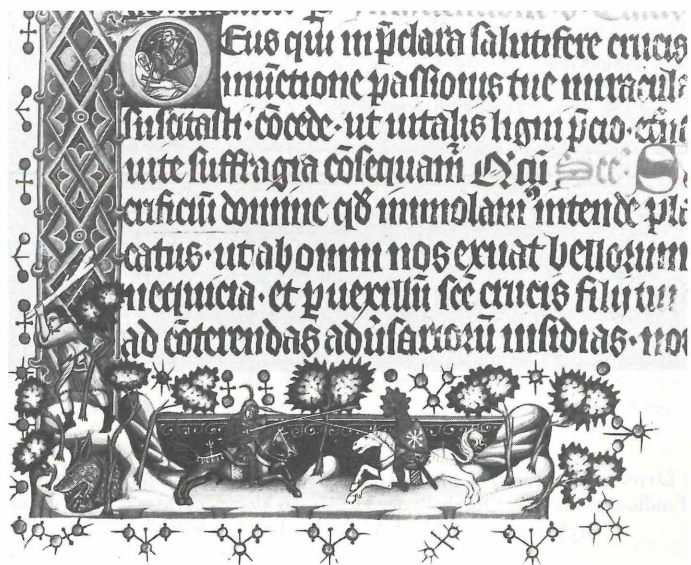 Deus qui in p̄clara salutifere crucis
inuētione passionis tue miracula
suscitasti · cōcede · ut uitalis ligni p̄cio · etn̄e
uite suffragia cōsequam̄ Qcū See · S
crificiū domine qd̄ immolam᷒ intende pla
catus · ut ab omni nos exuat bellorum
nequicia · et p uexillū scē crucis filij tui
ad cōterendas adūsariorū insidias · nos